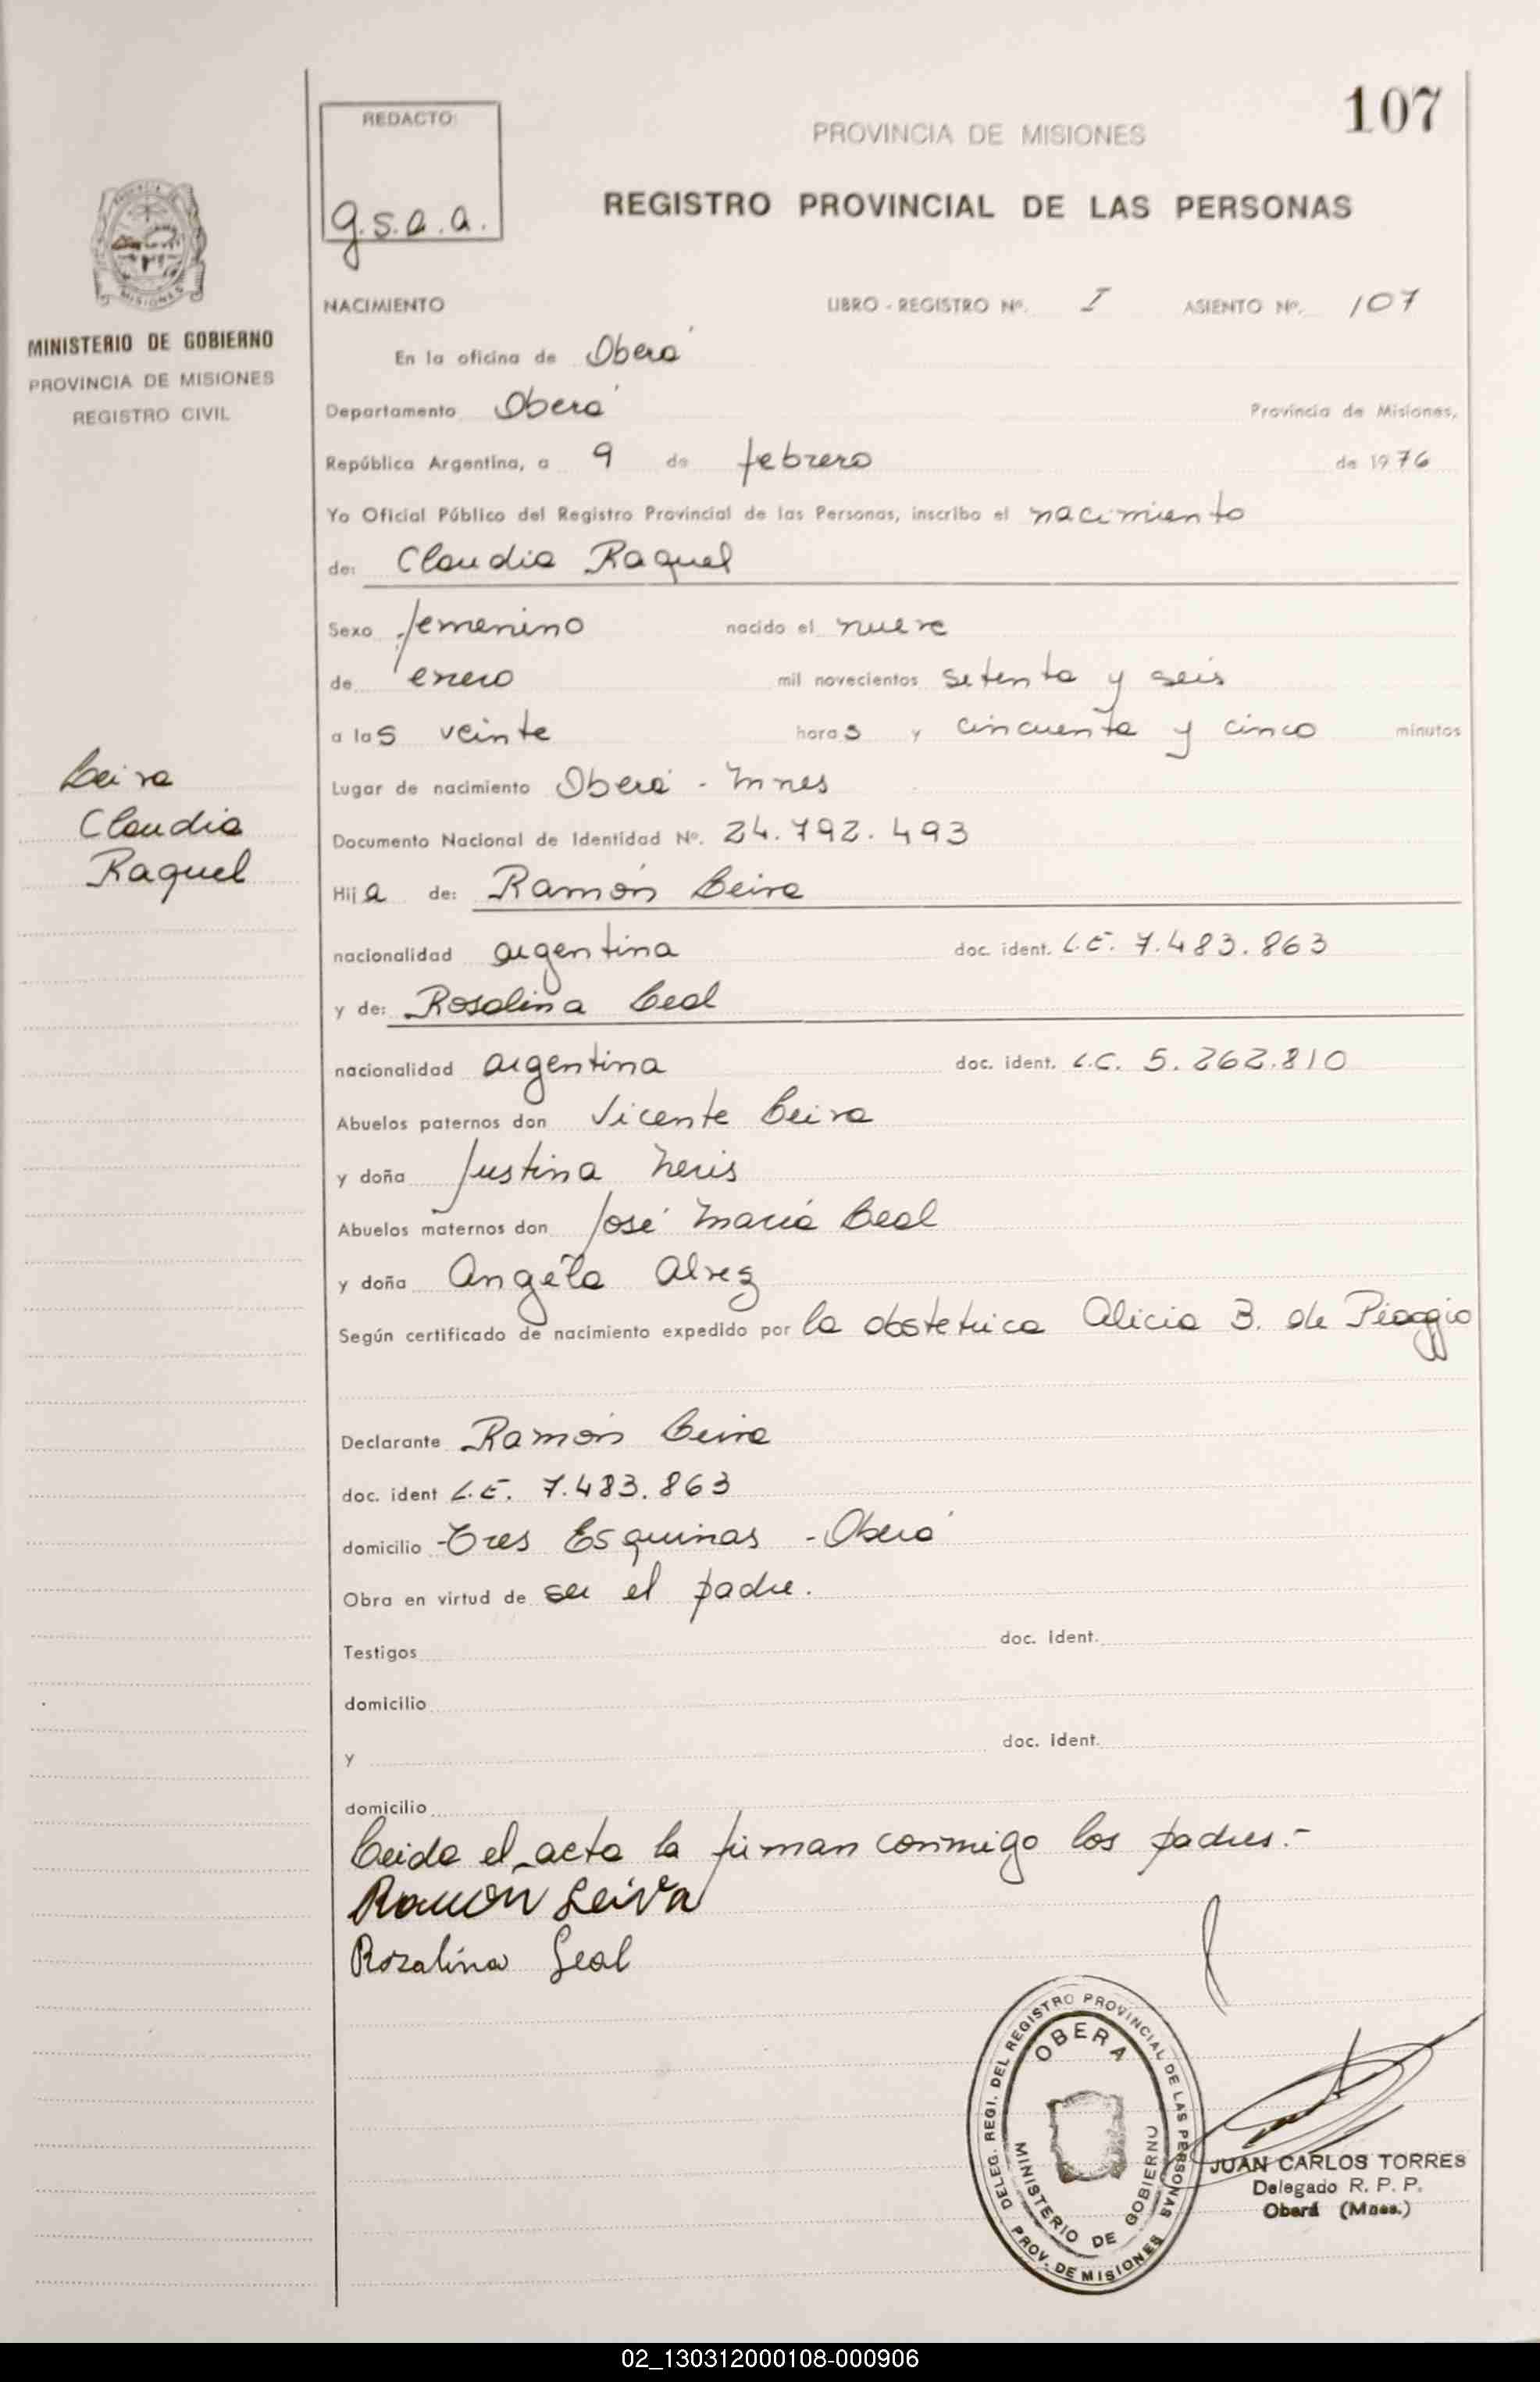 107
REDACTO:
g.s.a.a.
PROVINCIA DE MISIONES
REGISTRO PROVINCIAL DE LAS PERSONAS
MISIONES
MINISTERIO DE GOBIERNO
PROVINCIA DE MISIONES
REGISTRO CIVIL
NACIMIENTO LIBRO - REGISTRO Nº. I ASIENTO Nº. 107
En la oficina de Oberá
Departamento Oberá Provincia de Misiones,
República Argentina, a 9 de febrero de 1976
Yo Oficial Público del Registro Provincial de las Personas, inscribo el nacimiento
de: Claudia Raquel
Sexo femenino nacido el nueve
de enero mil novecientos setenta y seis
a las veinte horas y cincuenta y cinco minutos
Leiva
Claudia
Raquel
Lugar de nacimiento Oberá - Mnes
Documento Nacional de Identidad Nº. 24.792.493
Hija de: Ramón Leiva
nacionalidad argentina doc. ident. L.E. 7.483.863
y de: Rosalina Leal
nacionalidad argentina doc. ident. L.C. 5.262.810
Abuelos paternos don Vicente Leiva
y doña Justina Neris
Abuelos maternos don José María Leal
y doña Angela Alvez
Según certificado de nacimiento expedido por la obstetrica Alicia B. de Pioggio
Declarante Ramón Leiva
doc. ident L.E. 7.483.863
domicilio Tres Esquinas - Oberá
Obra en virtud de ser el padre.
Testigos doc. ident.
domicilio
y doc. ident.
domicilio
Leida el acta la firman conmigo los padres.-
Ramon Leiva
Rozalina Leal
DELEG. REGI. DEL REGISTRO PROVINCIAL DE LAS PERSONAS
OBERA
MINISTERIO DE GOBIERNO
PROV. DE MISIONES
JUAN CARLOS TORRES
Delegado R. P. P.
Oberá (Mnes.)
02_130312000108-000906